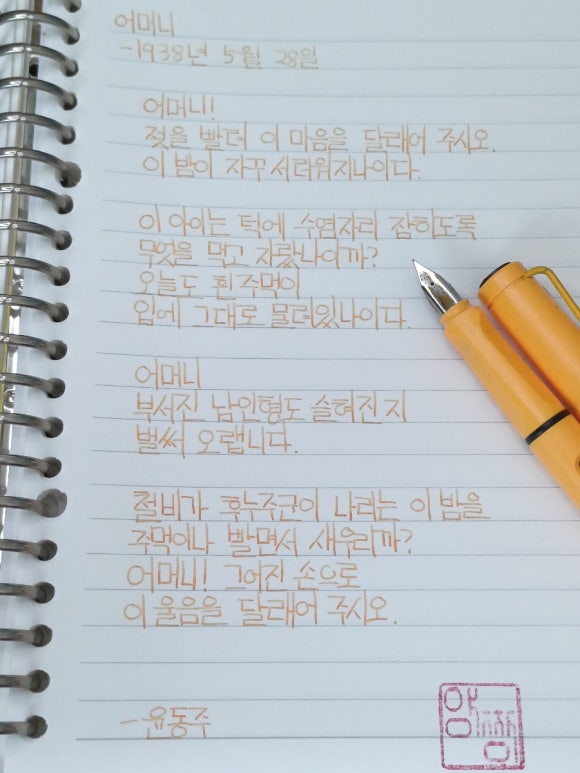 어머니
-1938년 5월 28일
어머니!
젖을 빨려 이 마음을 달래어 주시오.
이 밤이 자꾸 서러워지나이다.
이 아이는 턱에 수염자리 잡히도록
무엇을 먹고 자랐나이까?
오늘도 흰 주먹이
입에 그대로 물려있나이다.
어머니
부서진 납인형도 슬혀진 지
벌써 오랩니다.
철비가 후누주군이 나리는 이 밤을
주먹이나 빨면서 새우리까?
어머니! 그 어진 손으로
이 울음을 달래어 주시오.
-윤동주